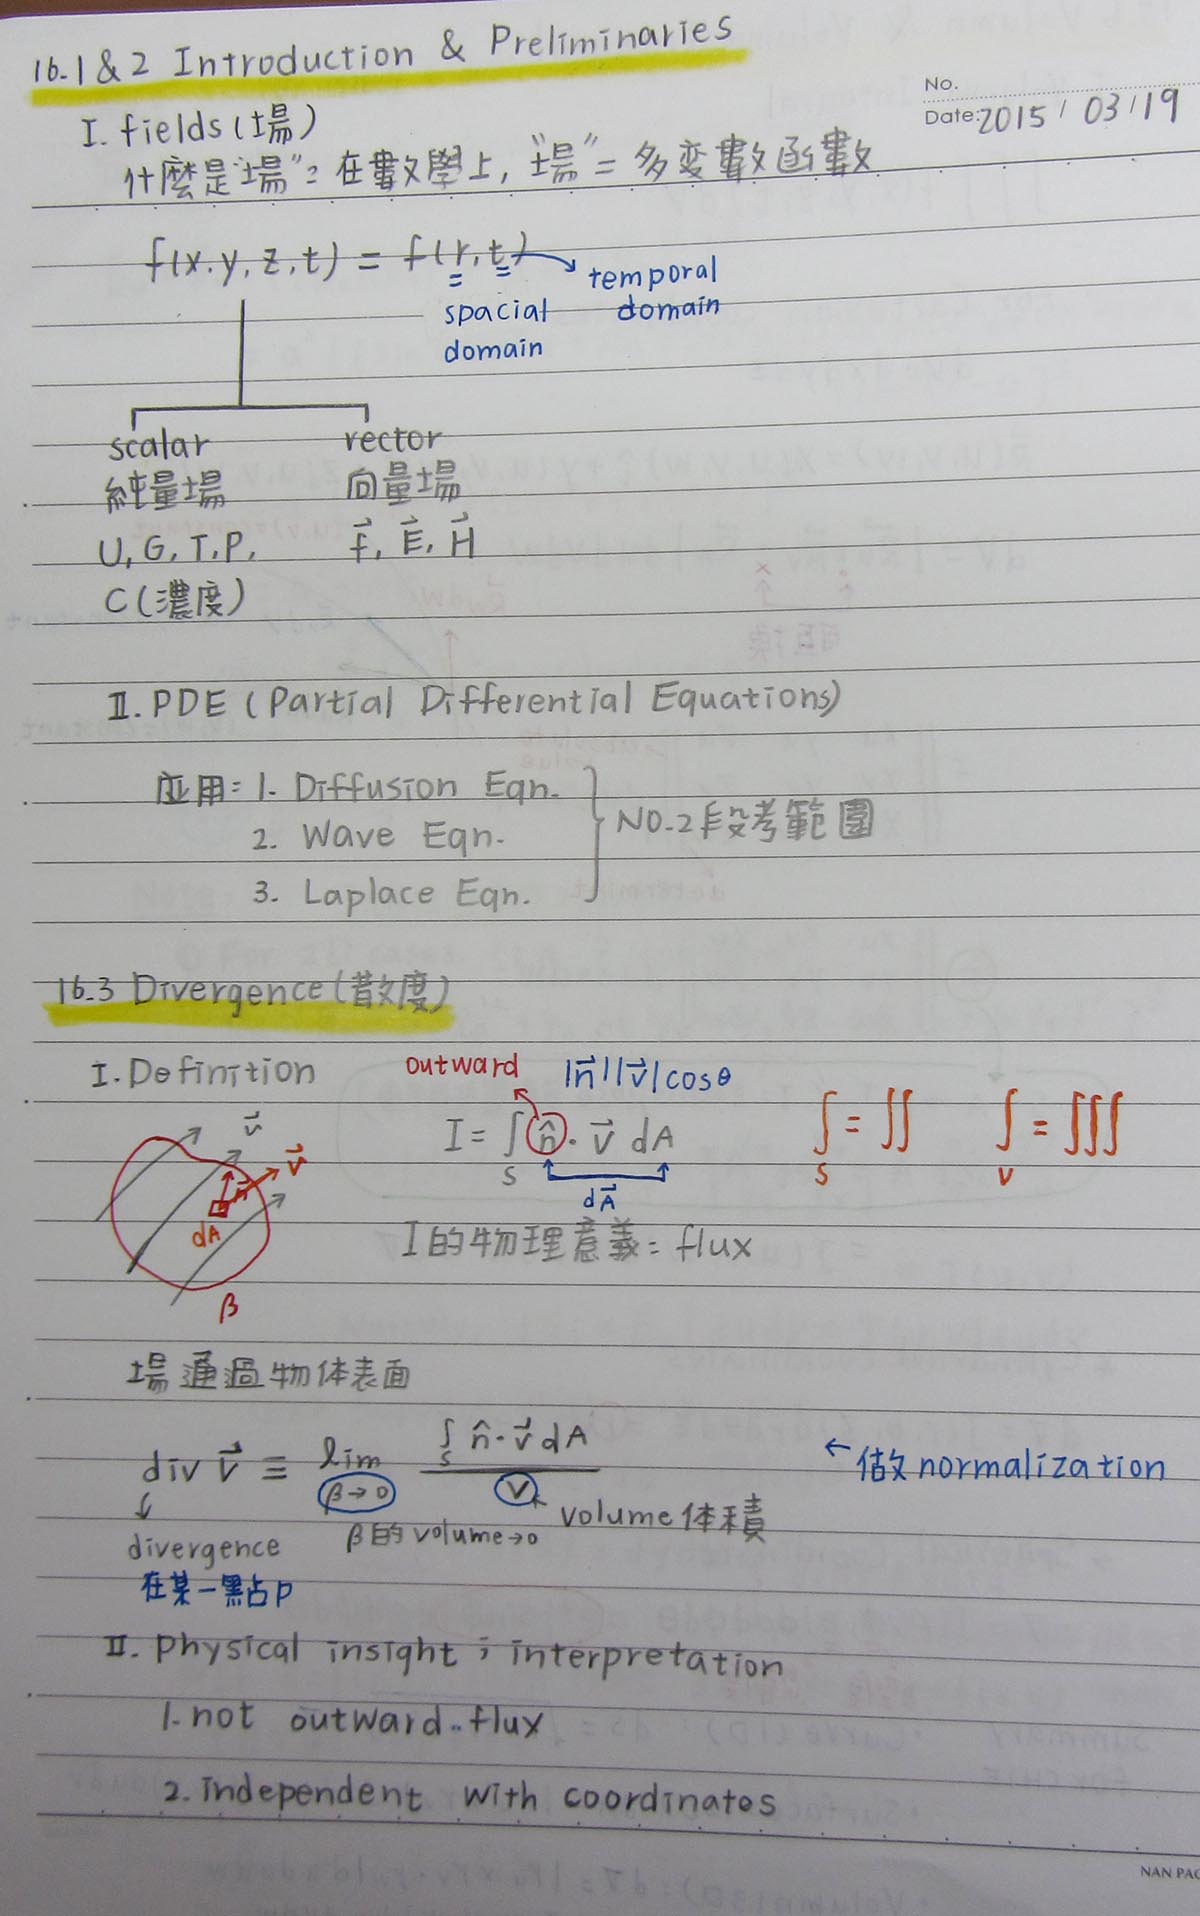 16.1 & 2 Introduction & Preliminaries
No.
Date: 2015 / 03 / 19
I. fields (場)
什麼是"場": 在數學上, "場" = 多變數函數
f(x.y,z,t) = f(r,t)
temporal domain
spacial domain
scalar rector
純量場 向量場
U, G, T, P, f⃗, E⃗, H⃗
C (濃度)
II. PDE (Partial Differential Equations)
应用: 1. Diffusion Eqn.
2. Wave Eqn.
3. Laplace Eqn.
NO.2段考範圍
16.3 Divergence (散度)
I. Definition
outward |n⃗||v⃗|cosθ
I = ∫S n̂ · v⃗ dA
dA⃗
∫S = ∬ ∫V = ∭
v⃗
v⃗
n⃗
dA
β
I的物理意義: flux
場通過物体表面
div v⃗ ≡ lim β→0 ∫S n̂ · v⃗ dA / V
← 做 normalization
volume 体積
β的 volume→0
divergence
在某一點占P
II. physical insight ; interpretation
1. not outward flux
2. independent with coordinates
NAN PAO